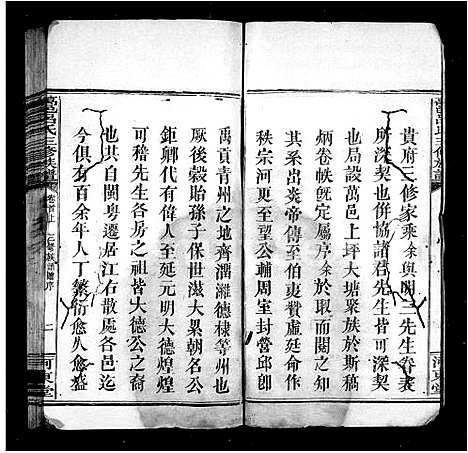 貴府三修家乘余與開三先生春表
所深契也併協諸君先生皆可深契
也局設萬邑上坪大塘聚族於斯稿
炳卷帙既定屬序余於展而閱之知
其系出炎帝傳至伯夷贊虞廷命作
秩宗河東望公輔周室封營邱卽
禹貢青州之地齊濰濰德棣等州也
厥後穀貽孫子保世滋大累朝名公
鉅卿代有偉人至延元明大德煌煌
可稽先生各房之祖皆大德公之裔
代其自閩粤遷居江右散處各邑迄
今俱有百余年人丁繁衍愈久愈盛
萬邑呂氏三修族譜
卷首上
二
河東堂
萬邑呂氏三修族譜
河東堂